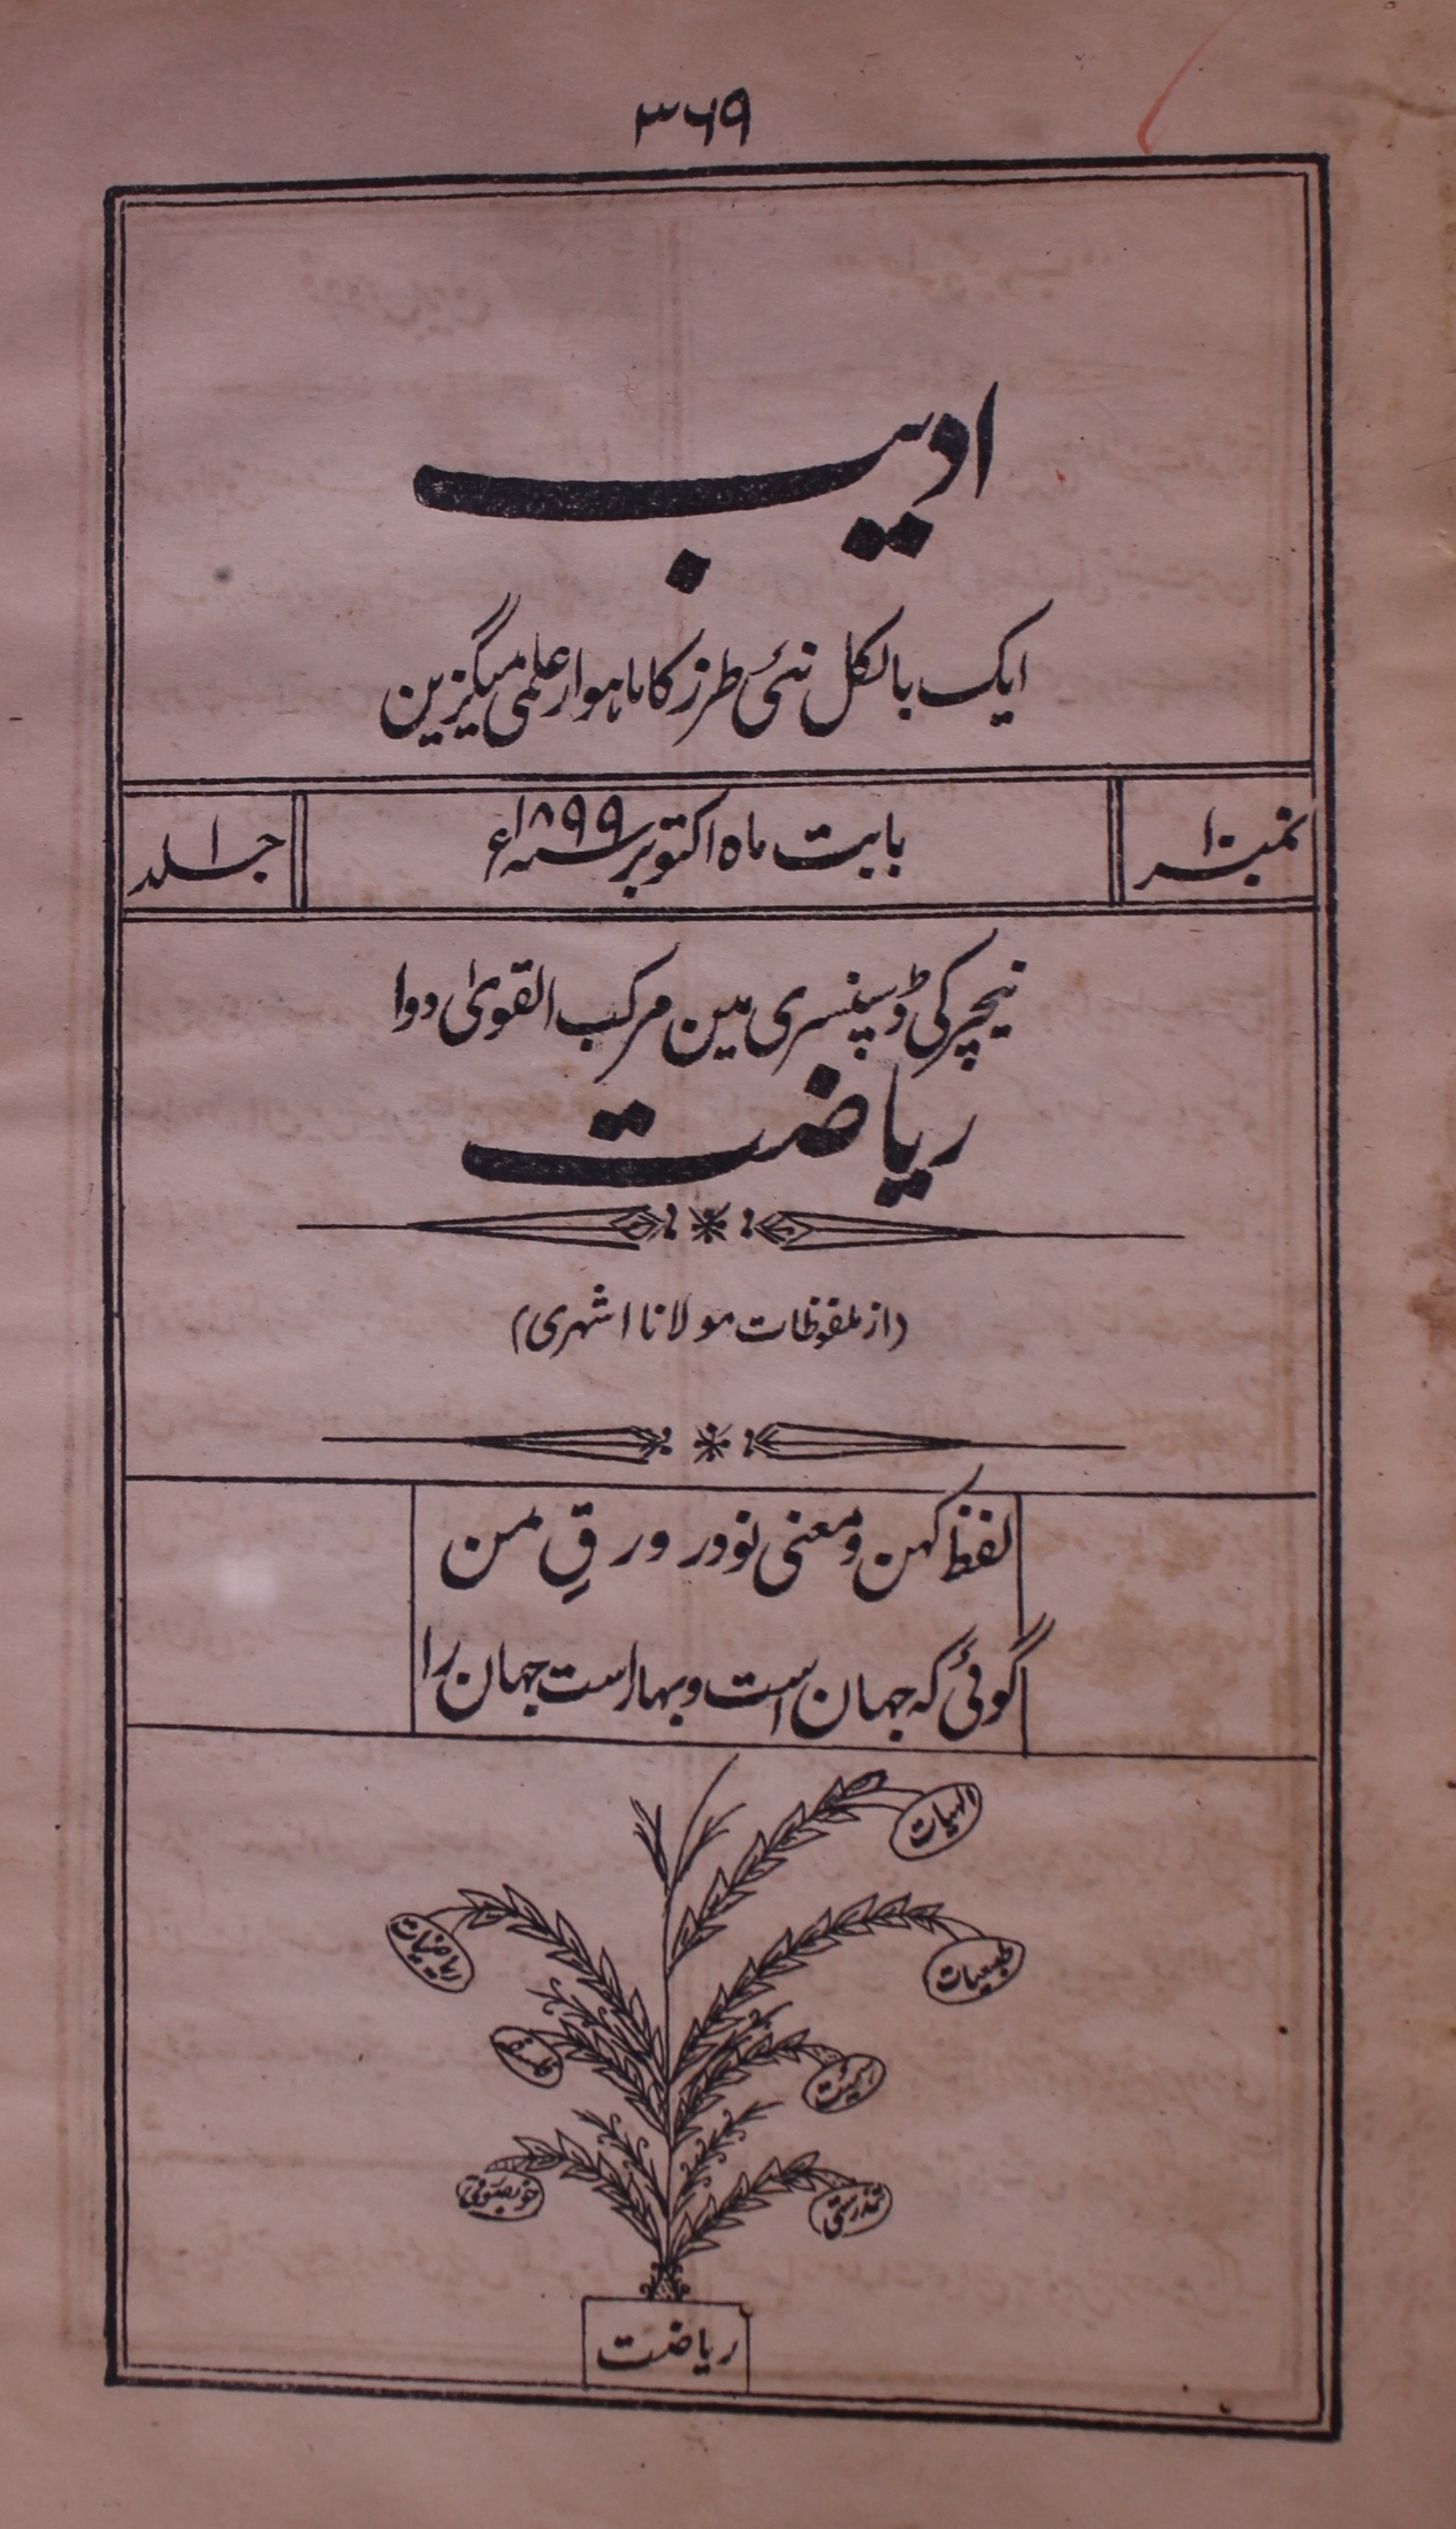 ۳۶۹
ادیب
ایک بالکل نئی طرز کا ماہوار علمی میگزین
نمبر ۱۰
بابت ماہ اکتوبر سنہ ۱۸۹۹ء
جلد ۱
نیچر کی ڈسپنسری مین مرکب القویٰ دوا
ریاضت
(از ملفوظات مولانا اشہری)
لفظ کہن و معنی نو در ورقِ من
گوئی کہ جہان است و بہار است جہان را
الہیات
ریاضیات
طبعیات
فلسفہ
ہیئت
خوبصورتی
تندرستی
ریاضت